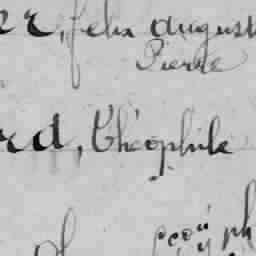 er, felix august
Pierre
rd, Théophile